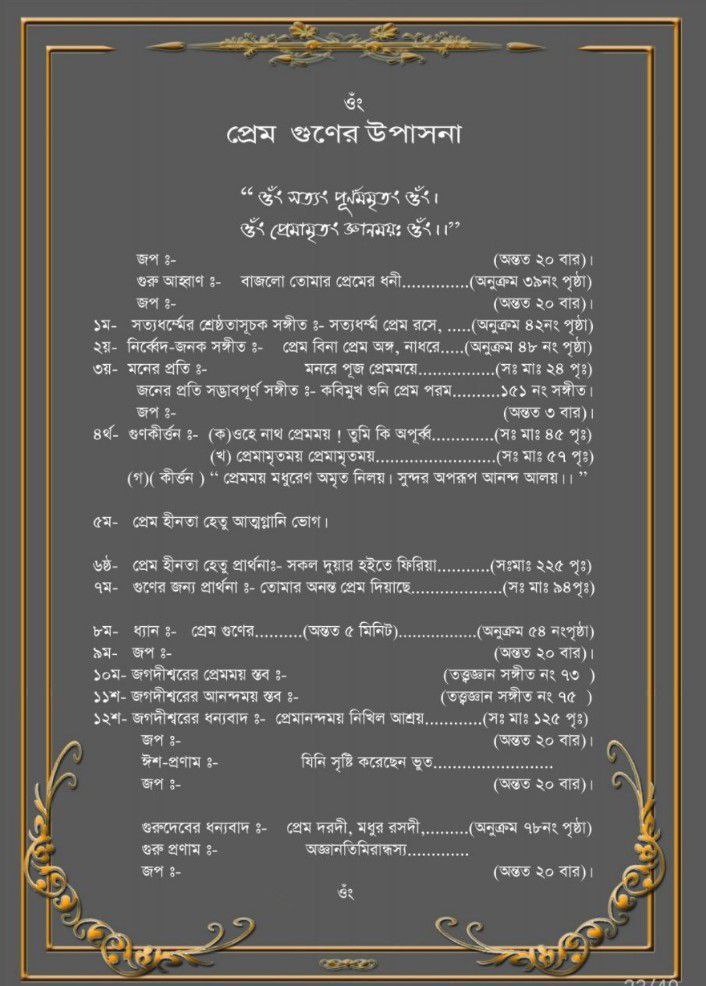 ওঁং
প্রেম গুণের উপাসনা
“ ওঁং সত্যং পূর্নমমৃতং ওঁং।
ওঁং প্রেমামৃতং জ্ঞানময়ঃ ওঁং।।”
জপ ঃ- (অন্তত ২০ বার)।
গুরু আহ্বাণ ঃ- বাজলো তোমার প্রেমের ধনী..............(অনুক্রম ৩৯নং পৃষ্ঠা)
জপ ঃ- (অন্তত ২০ বার)।
১ম- সত্যধর্ম্মের শ্রেষ্ঠতাসূচক সঙ্গীত ঃ- সত্যধর্ম্ম প্রেম রসে, .....(অনুক্রম ৪২নং পৃষ্ঠা)
২য়- নির্ব্বেদ-জনক সঙ্গীত ঃ- প্রেম বিনা প্রেম অঙ্গ, নাধরে.....(অনুক্রম ৪৮ নং পৃষ্ঠা)
৩য়- মনের প্রতি ঃ- মনরে পূজ প্রেমময়ে................(সঃ মাঃ ২৪ পৃঃ)
জনের প্রতি সদ্ভাবপূর্ণ সঙ্গীত ঃ- কবিমুখ শুনি প্রেম পরম..........১৫১ নং সঙ্গীত।
জপ ঃ- (অন্তত ৩ বার)।
৪র্থ- গুণকীর্ত্তন ঃ- (ক)ওহে নাথ প্রেমময় ! তুমি কি অপূর্ব্ব.............(সঃ মাঃ ৪৫ পৃঃ)
(খ) প্রেমামৃতময় প্রেমামৃতময়.........................(সঃ মাঃ ৫৭ পৃঃ)
(গ)( কীর্ত্তন ) “ প্রেমময় মধুরেণ অমৃত নিলয়। সুন্দর অপরূপ আনন্দ আলয়।। ”
৫ম- প্রেম হীনতা হেতু আত্মগ্লানি ভোগ।
৬ষ্ঠ- প্রেম হীনতা হেতু প্রার্থনাঃ- সকল দুয়ার হইতে ফিরিয়া...........(সঃমাঃ ২২৫ পৃঃ)
৭ম- গুণের জন্য প্রার্থনা ঃ- তোমার অনন্ত প্রেম দিয়াছে...................(সঃ মাঃ ৯৪পৃঃ)
৮ম- ধ্যান ঃ- প্রেম গুণের..........(অন্তত ৫ মিনিট)................(অনুক্রম ৫৪ নংপৃষ্ঠা)
৯ম- জপ ঃ- (অন্তত ২০ বার)।
১০ম- জগদীশ্বরের প্রেমময় স্তব ঃ- (তত্ত্বজ্ঞান সঙ্গীত নং ৭৩ )
১১শ- জগদীশ্বরের আনন্দময় স্তব ঃ- (তত্ত্বজ্ঞান সঙ্গীত নং ৭৫ )
১২শ- জগদীশ্বরের ধন্যবাদ ঃ- প্রেমানন্দময় নিখিল আশ্রয়............(সঃ মাঃ ১২৫ পৃঃ)
জপ ঃ- (অন্তত ২০ বার)।
ঈশ-প্রণাম ঃ- যিনি সৃষ্টি করেছেন ভুত.........................
জপ ঃ- (অন্তত ২০ বার)।
গুরুদেবের ধন্যবাদ ঃ- প্রেম দরদী, মধুর রসদী,.........(অনুক্রম ৭৮নং পৃষ্ঠা)
গুরু প্রণাম ঃ- অজ্ঞানতিমিরান্ধস্য.............
জপ ঃ- (অন্তত ২০ বার)।
ওঁং